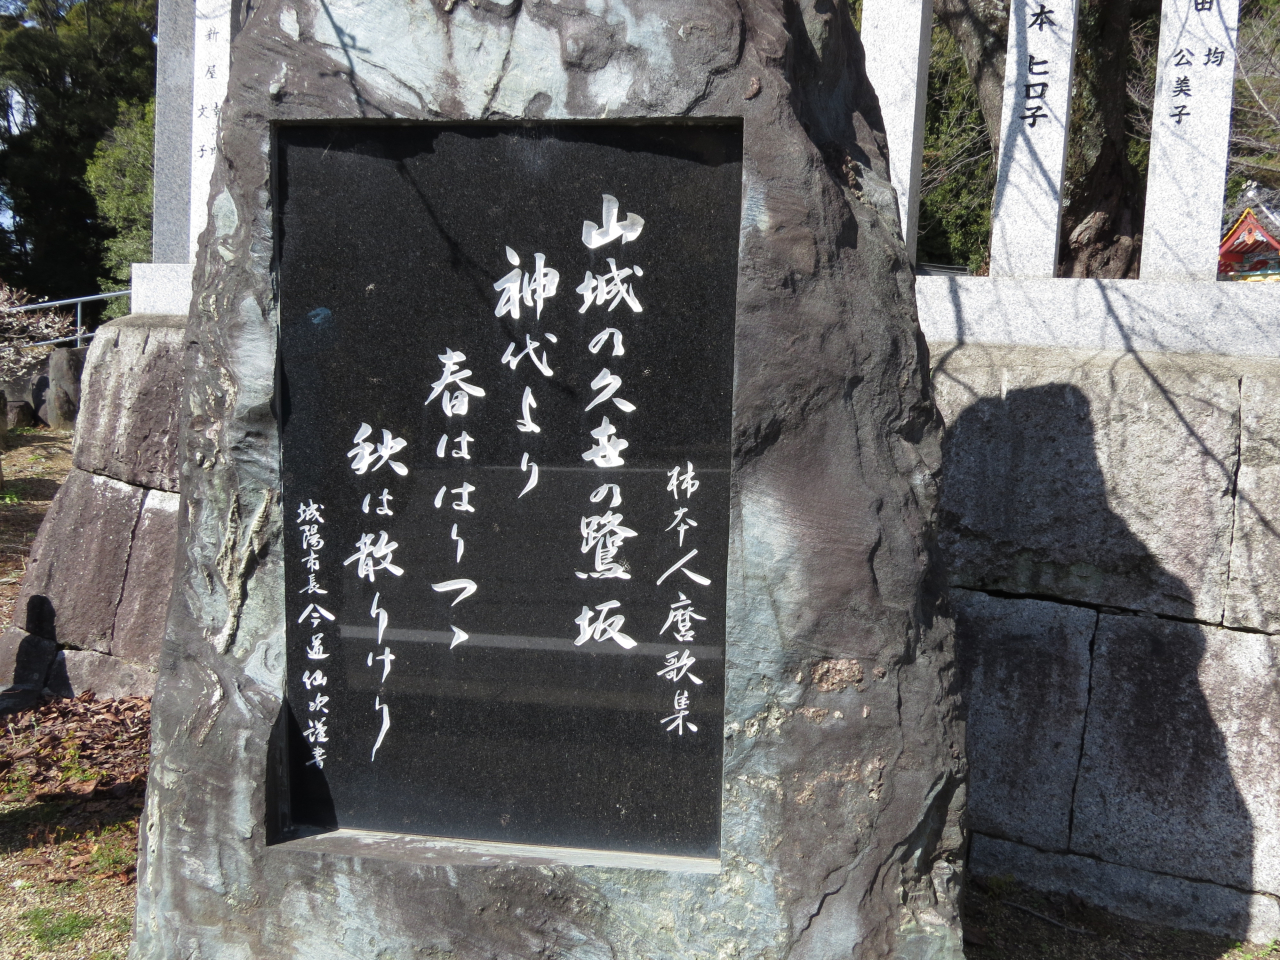 柿本人麿歌集
山城の久世の鷺坂
神代より
春ははりつゝ
秋は散りけり
城陽市長 今道仙次 謹書
本ヒロ子
田 均
公美子
新屋
文子